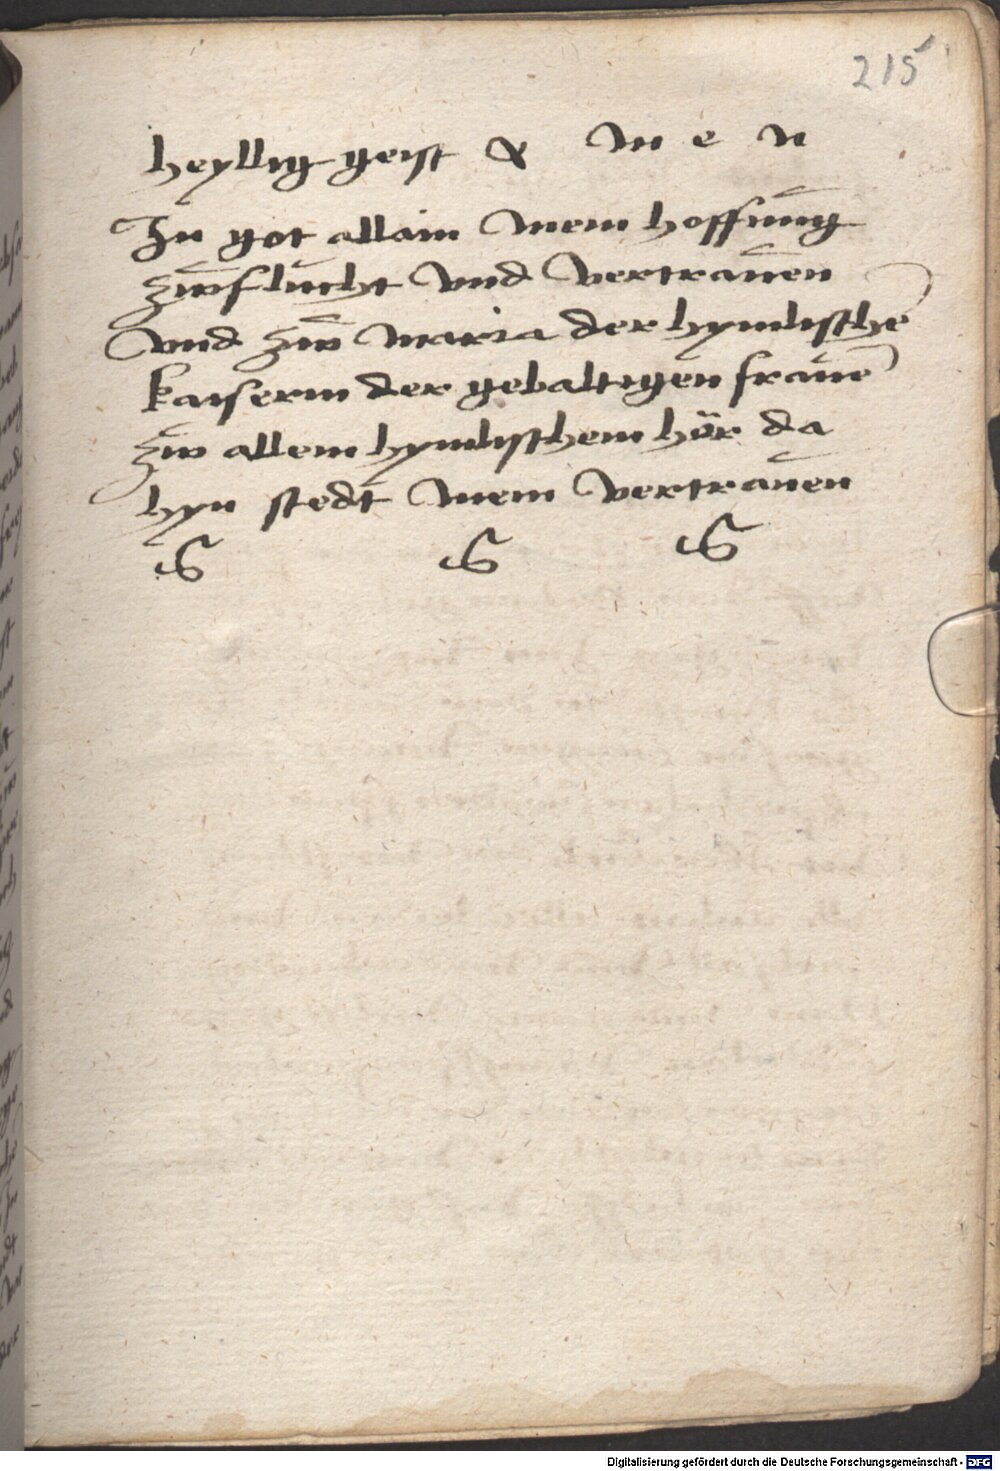 215
heyllig geist A m e n
In got allain mein hoffnung
zwflucht vnd vertrauen
vnd zw maria der hymlischē
kaiserin der gebaltigen frauē
zw allem hymlischem hör da
hyn stedt mein vertrauen
S S S
Digitalisierung gefördert durch die Deutsche Forschungsgemeinschaft - DFG